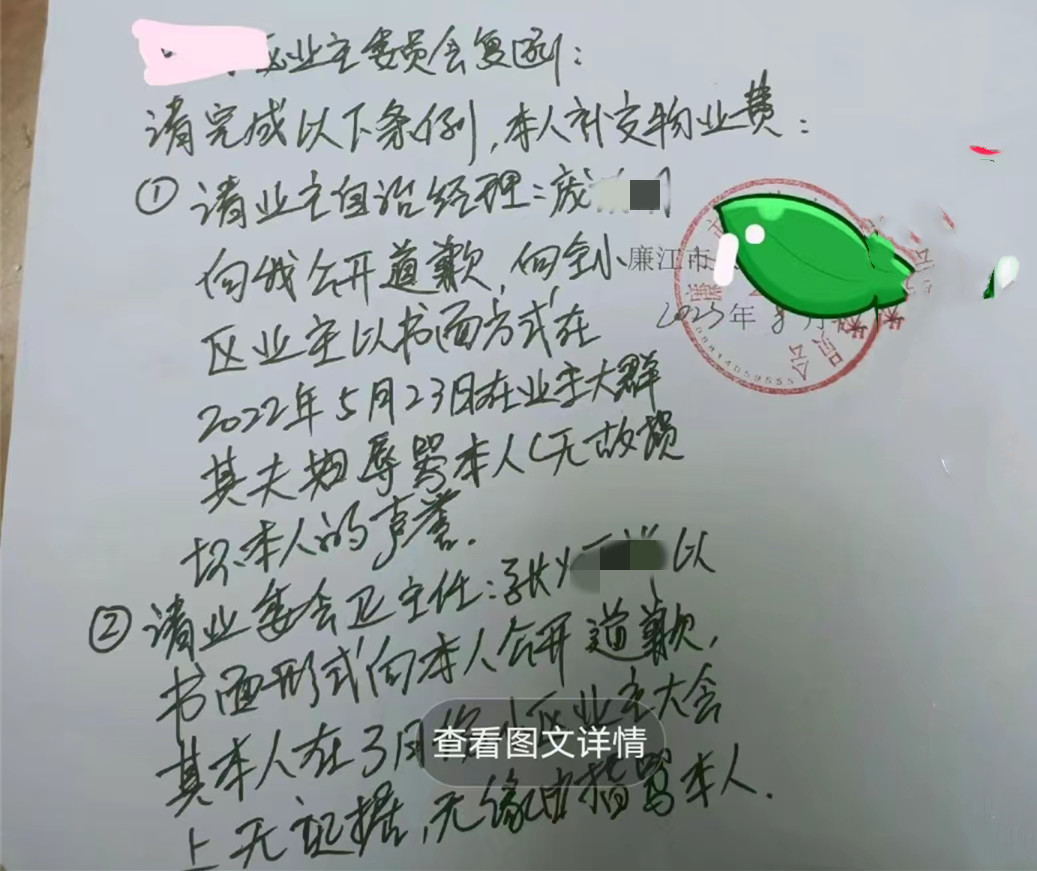 区业主委员会复函:
请完成以下条例,本人补交物业费:
① 请业主自治经理:庞
向我公开道歉,向全小
廉江市
区业主以书面方式在
2023年8月
2022年5月23日在业主大群
其夫妇辱骂本人(无故损
坏本人的声誉.
② 请业委会卫主任:张 以
书面形式向本人公开道歉,
其本人在3月 小区业主大会
查看图文详情
上无证据,无缘由指骂本人.